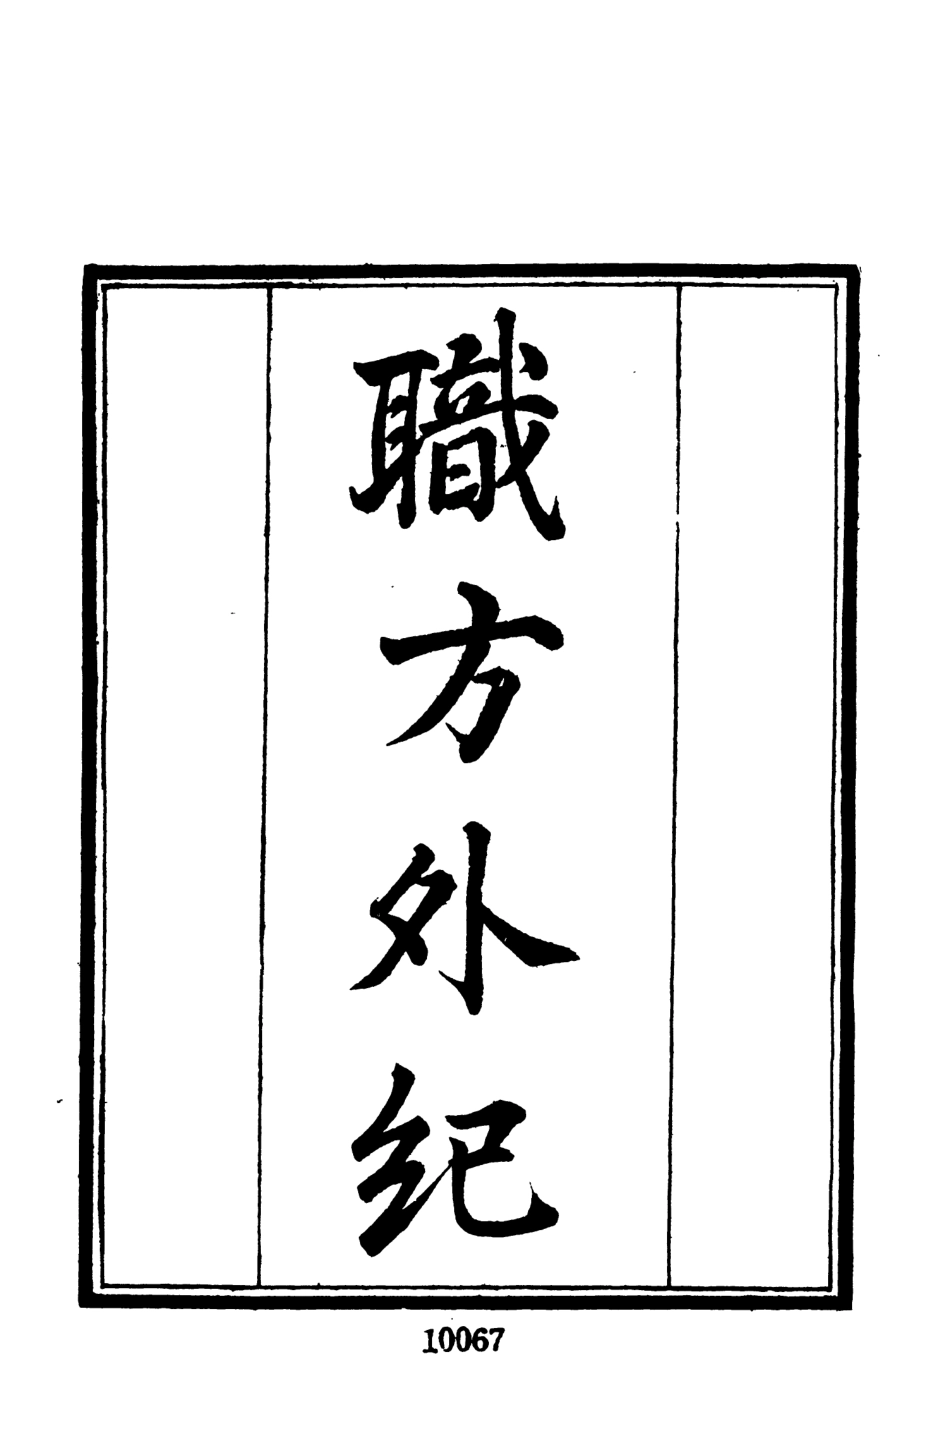 職方外纪
10067